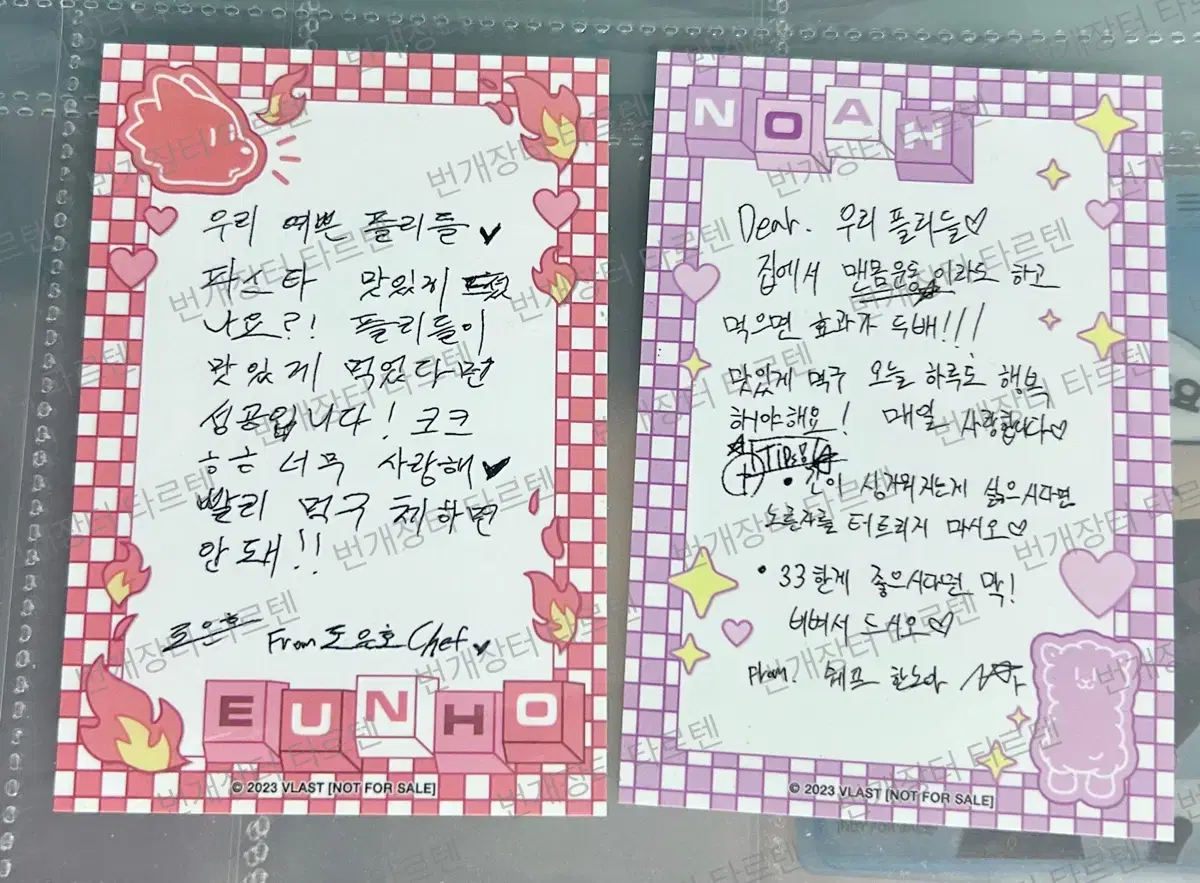 우리 예쁜 플리들
파스타 맛있게 드셨
나요?! 플리들이
맛있게 먹었다면
성공입니다! 크크
ㅎㅎ 너무 사랑해
빨리 먹구 체하면
안돼!!
From 도은호 Chef
EUNHO
© 2023 VLAST [NOT FOR SALE]
NOAH
Dear. 우리 플리들♡
집에서 맨몸운동이라도 하고
먹으면 효과가 두배!!!
맛있게 먹구 오늘 하루도 행복
해야해요! 매일 사랑합니다♡
TIPS
• 간이 싱거워지는게 싫으시다면
노른자를 터트리지 마시오♡
• 33한게 좋으시다면 막!
비벼서 드십오♡
From. 쉐프 한노아
© 2023 VLAST [NOT FOR SALE]
번개장터 타르텐